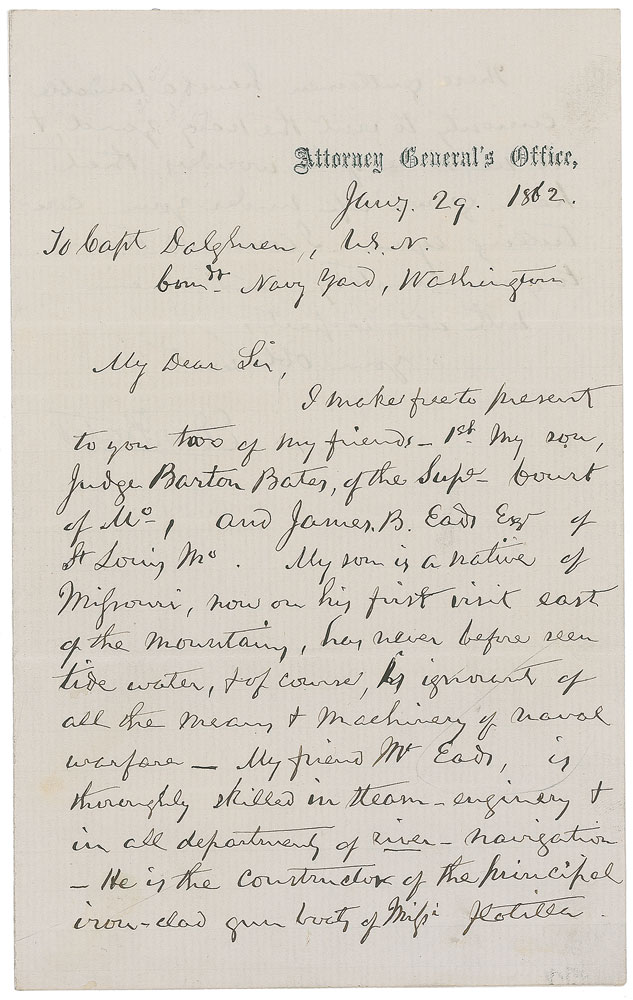 Attorney General's Office,
Jany. 29. 1862.
To Capt Dalghren, U.S.N.
Comdt Navy Yard, Washington
My Dear Sir,
I make free to present
to you two of my friends – 1st My son,
Judge Barton Bates, of the Supe Court
of Mo, and James. B. Eads Esqr of
St Louis Mo. My son is a native of
Missouri, now on his first visit east
of the mountains, has never before seen
tide water, & of course, is ignorant of
all the means & machinery of naval
warfare – My friend Mr Eads, is
thoroughly skilled in steam-enginery &
in all departments of river-navigation
– He is the constructor of the principal
iron-clad gun boats of Missi Flotilla.